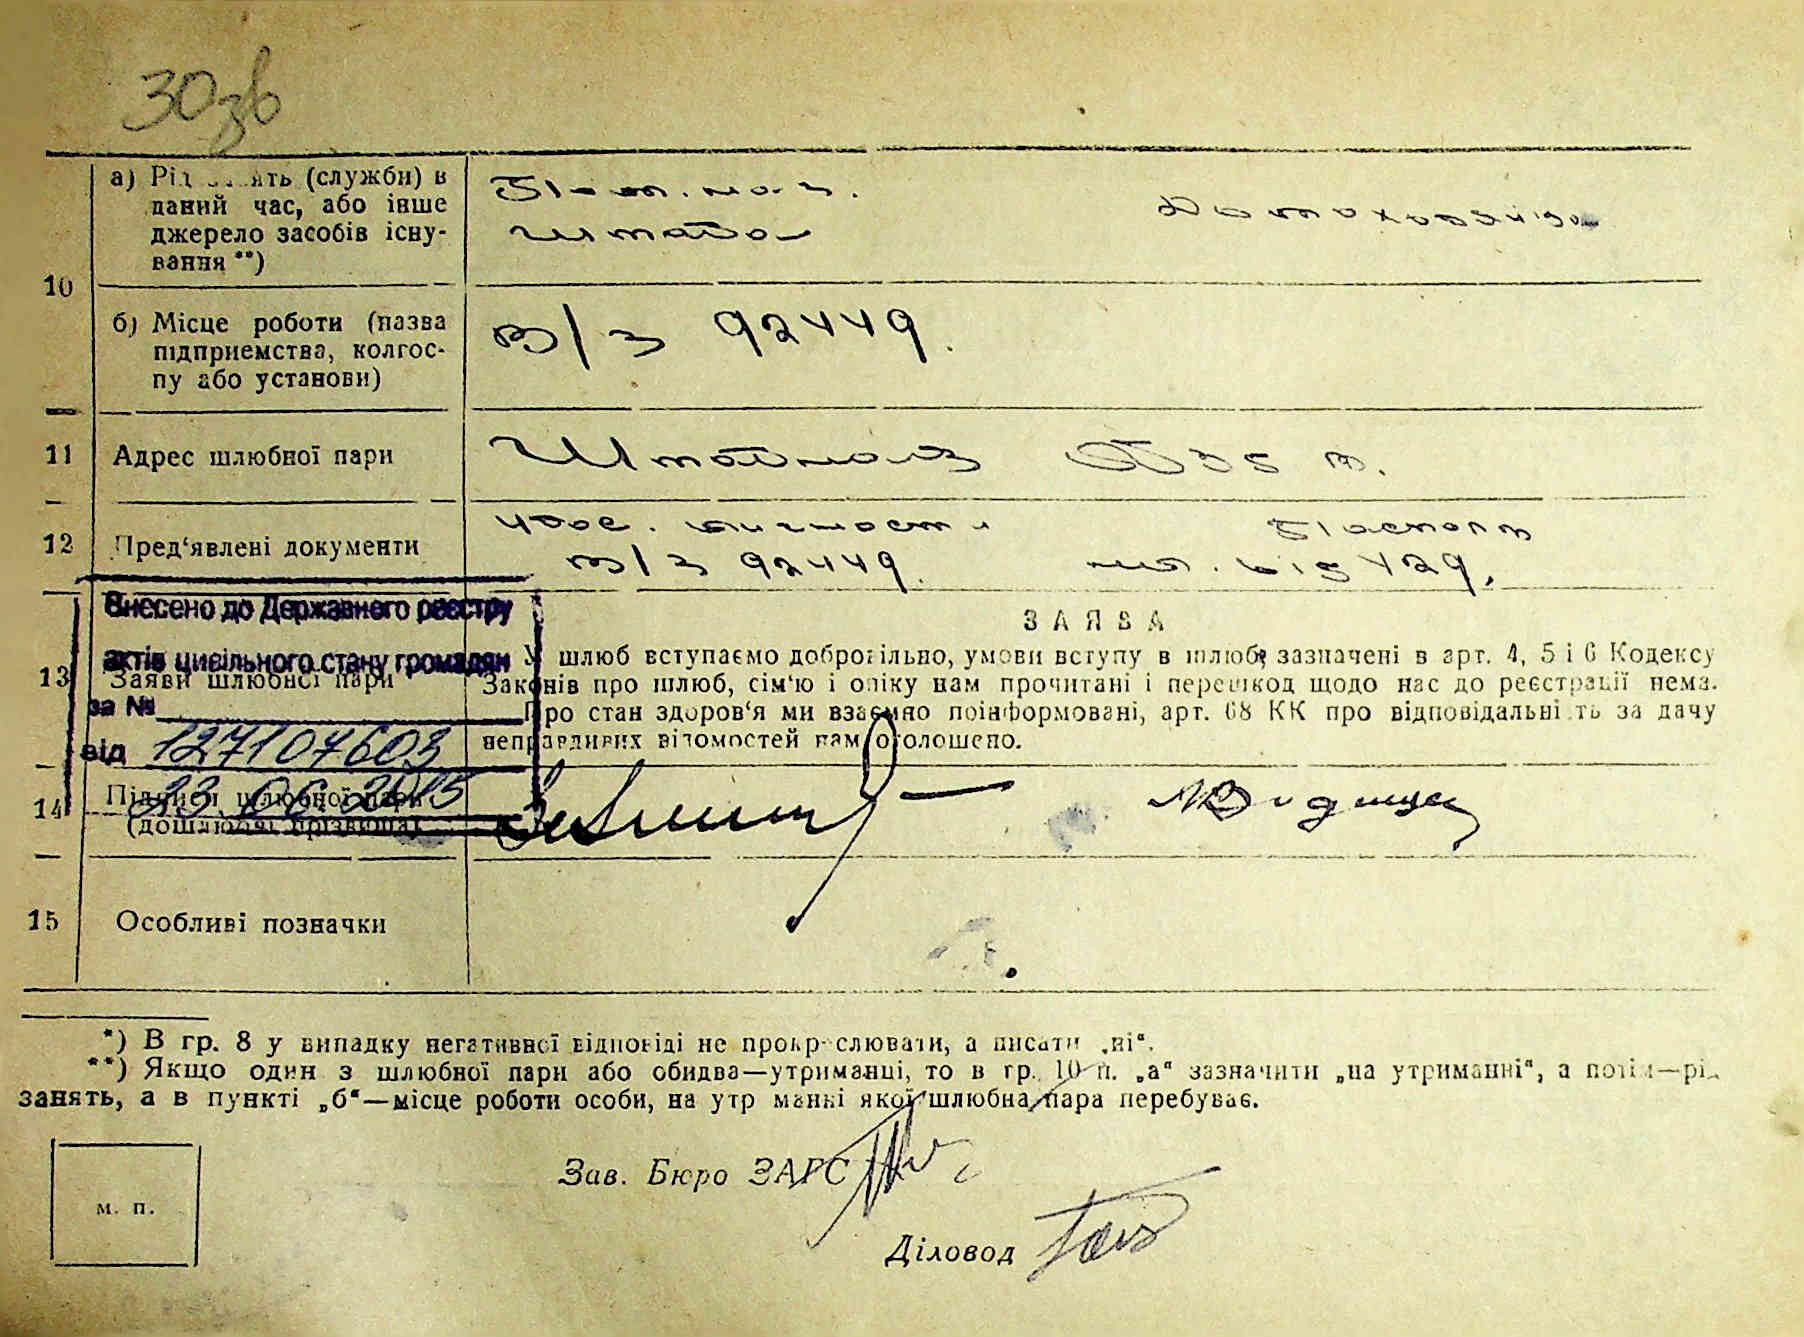 30зв
а) Рід занять (служби) в
даний час, або інше
джерело засобів існу-
вання **)
Пом. нач.
штаба
Домохозяйка
10
б) Місце роботи (назва
підприемства, колгос-
пу або установи)
в/з 92449.
11 Адрес шлюбної пари
Штабная 35 в.
12 Пред'явлені документи
удос. личности
в/з 92449.
Паспорт
Внесено до Державного реєстру
актів цивільного стану громадян
за №
від 127107603
23.06.2015
13 Заяви шлюбної пари
ЗАЯВА
У шлюб вступаємо добровільно, умови вступу в шлюб, зазначені в арт. 4, 5 і 6 Кодексу
Законів про шлюб, сім'ю і опіку нам прочитані і перешкод щодо нас до реєстрації нема.
Про стан здоров'я ми взаємно поінформовані, арт. 68 КК про відповідальність за дачу
неправдивих відомостей нам оголошено.
14 Підписи шлюбної пари
(дошлюбні прізвища)
15 Особливі позначки
*) В гр. 8 у випадку негативної відповіді не прокреслювати, а писати „ні“.
**) Якщо один з шлюбної пари або обидва—утриманці, то в гр. 10 п. „а“ зазначити „на утриманні“, а потім—рід
занять, а в пункті „б“—місце роботи особи, на утриманні якої шлюбна пара перебуває.
Зав. Бюро ЗАГС
м. п.
Діловод